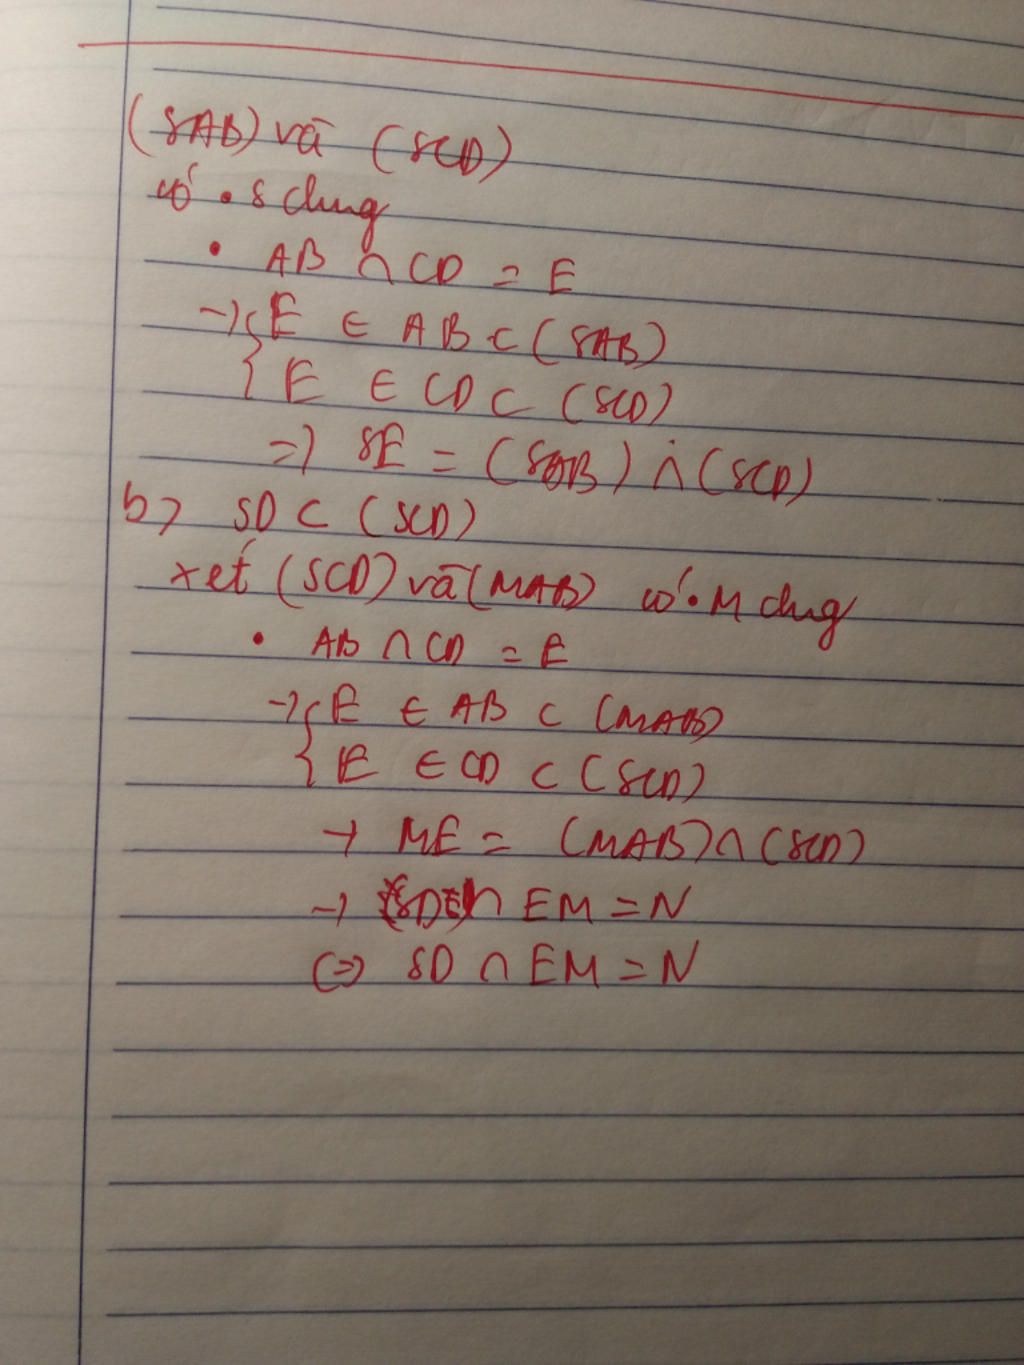 (SAB) và (SCD)
có • S chung
• AB ∩ CD = E
→ { E ∈ AB ⊂ (SAB)
{ E ∈ CD ⊂ (SCD)
=> SE = (SAB) ∩ (SCD)
b> SD ⊂ (SCD)
xét (SCD) và (MAB) có • M chung
• AB ∩ CD = E
→ { E ∈ AB ⊂ (MAB)
{ E ∈ CD ⊂ (SCD)
→ ME = (MAB) ∩ (SCD)
→ ∩ EM = N
<=> SD ∩ EM = N